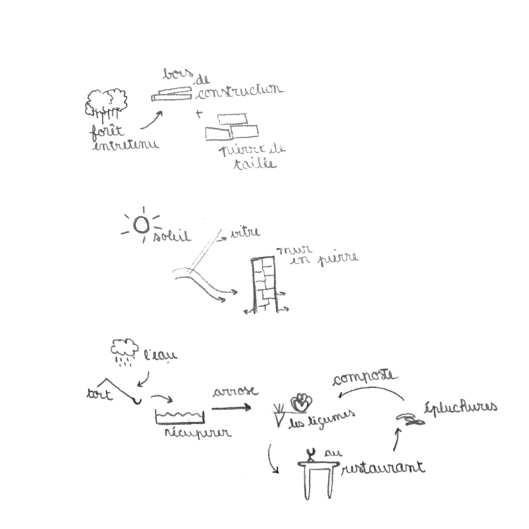 bois
de
construction
+
forêt
entretenu
pierre de
taille
soleil
vitre
mur
en pierre
l'eau
toit
arrose
récupérer
les légumes
composte
épluchures
au
restaurant